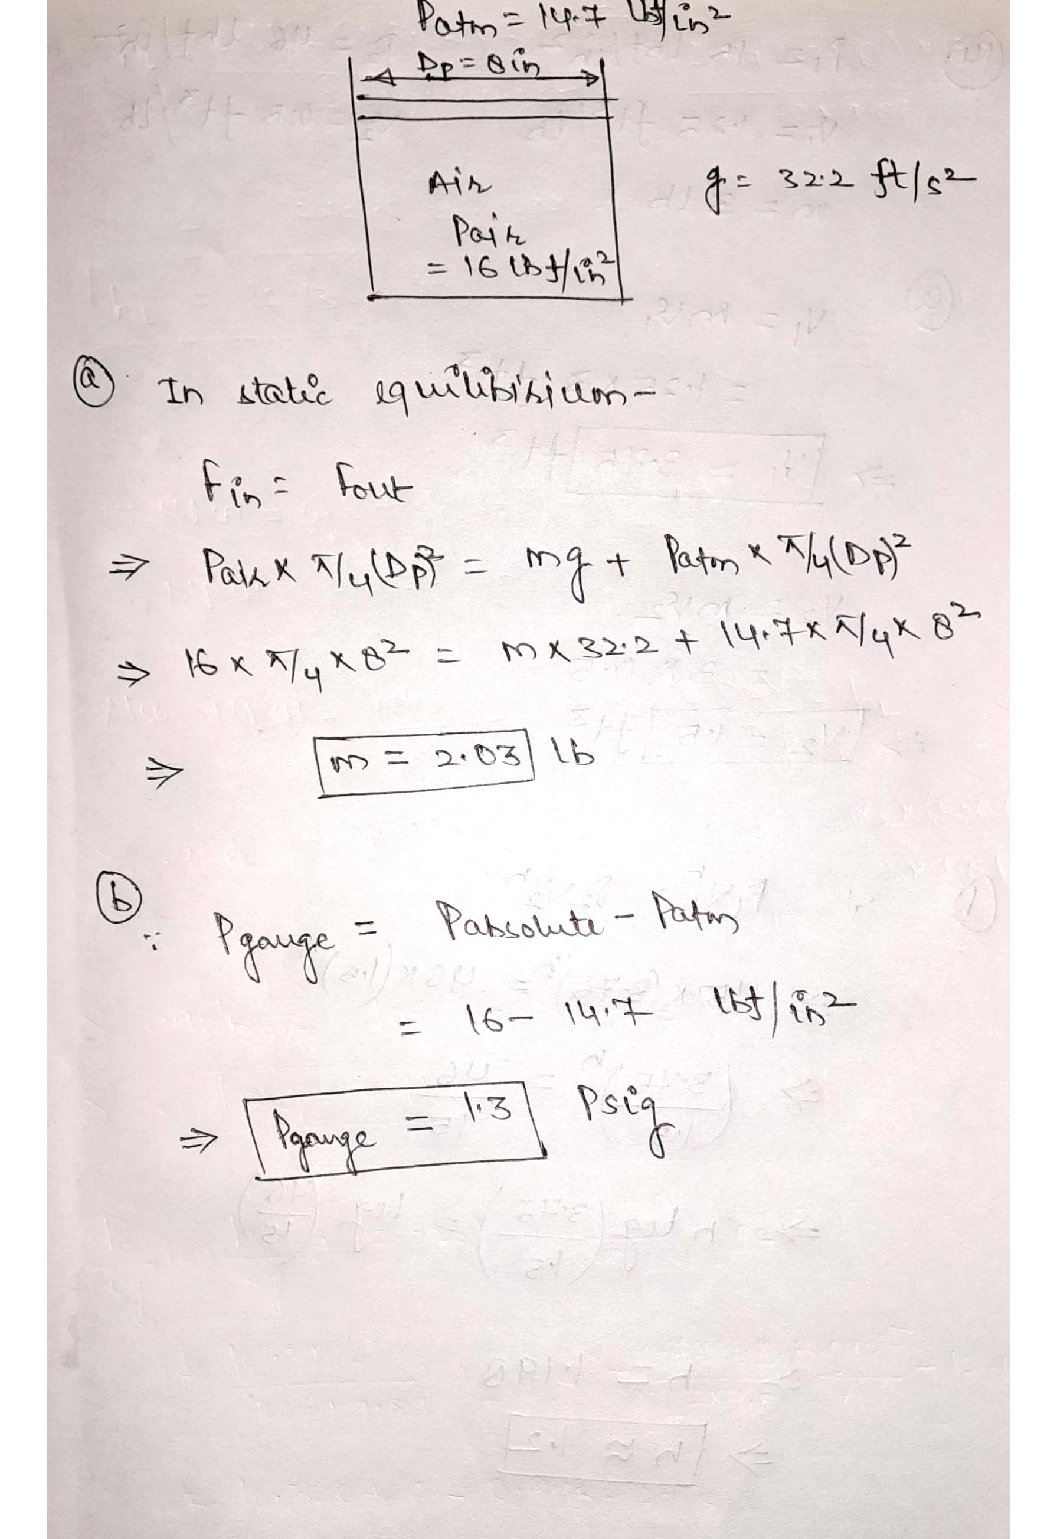 Patm = 14.7 lbf/in²
Dp = 8 in
Air
Pair
= 16 lbf/in²
g = 32.2 ft/s²
(a) In static equilibrium-
Fin = Fout
⇒ Pair x π/4(Dp)² = mg + Patm x π/4(Dp)²
⇒ 16 x π/4 x 8² = m x 32.2 + 14.7 x π/4 x 8²
⇒ m = 2.03 lb
(b) ∵ Pgauge = Pabsolute - Patm
= 16 - 14.7 lbf/in²
⇒ Pgauge = 1.3 Psig